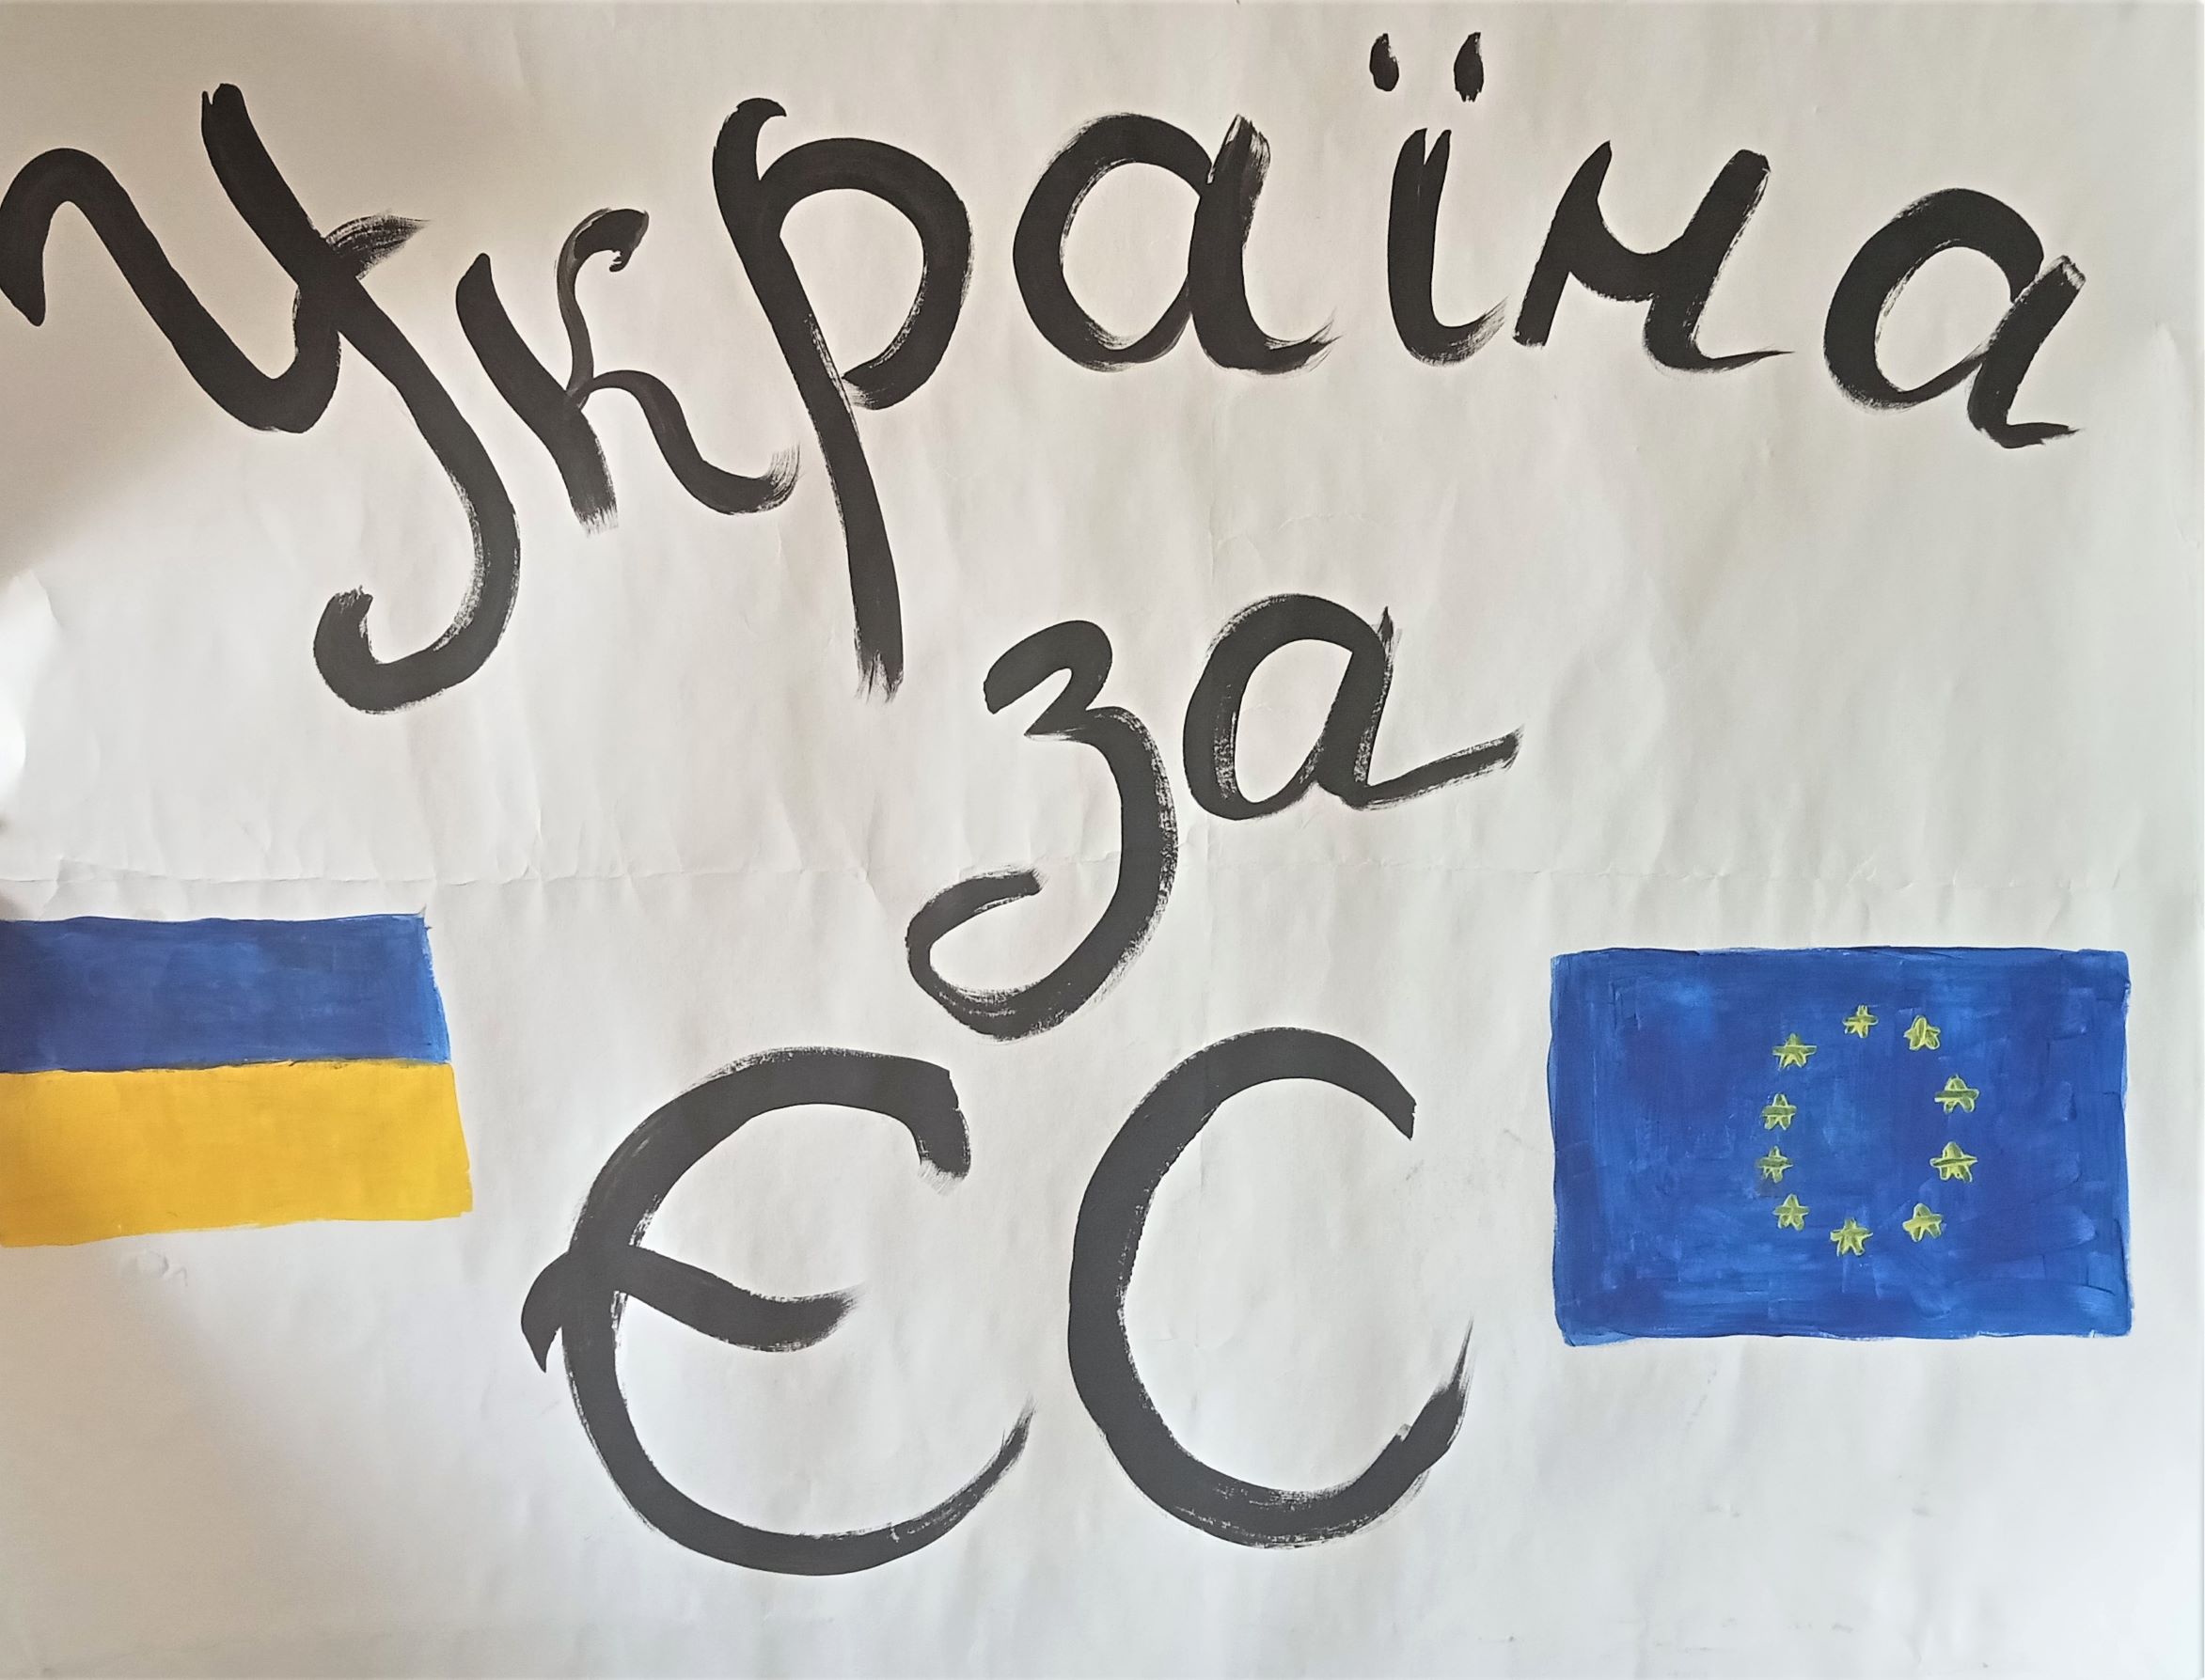 Україна
за
ЄС